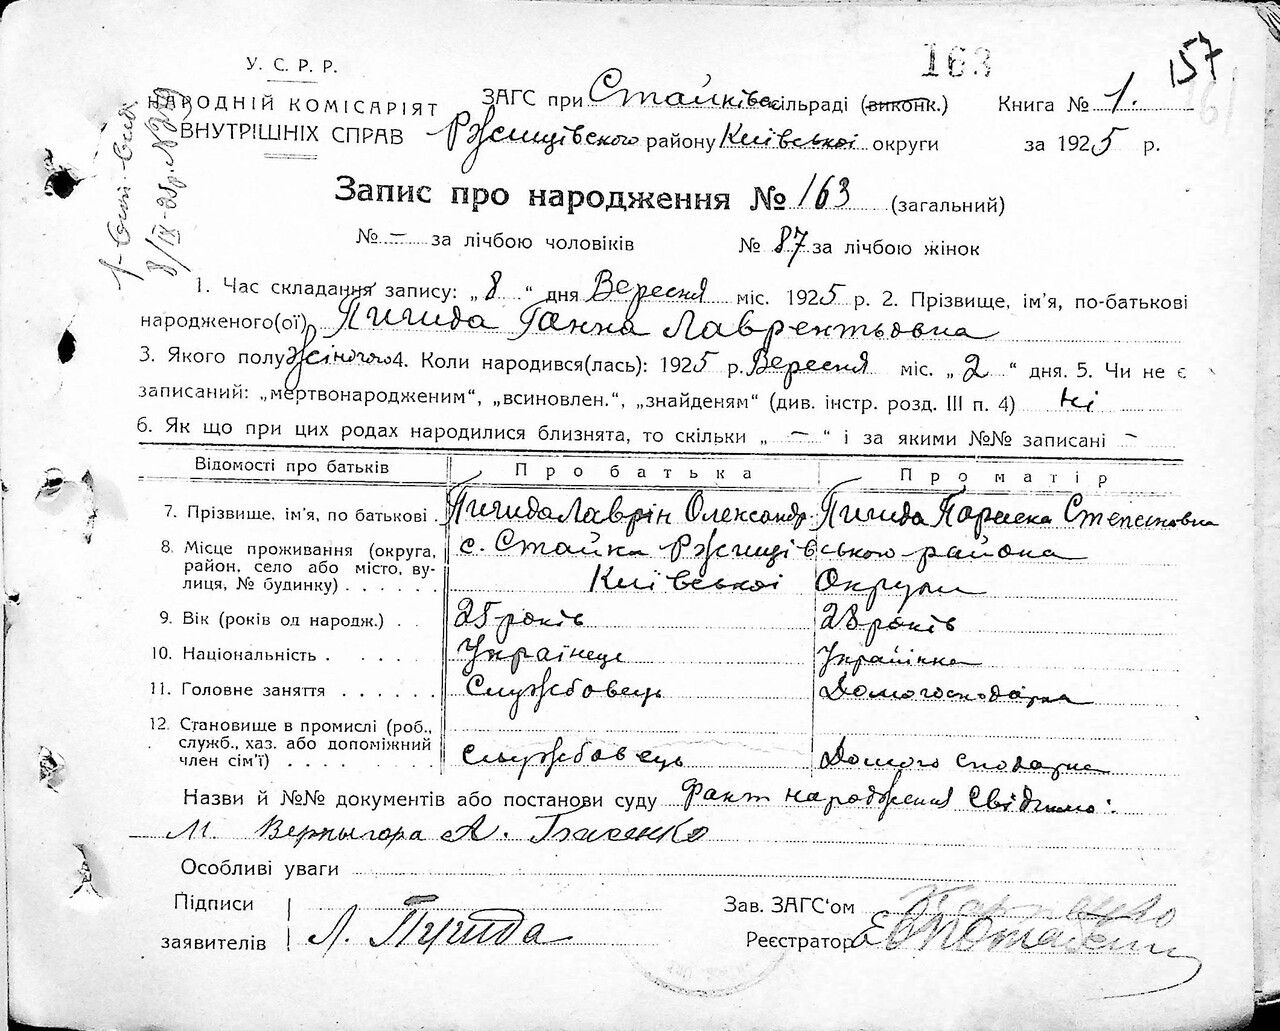 163
157
У. С. Р. Р.
НАРОДНІЙ КОМІСАРІЯТ
ВНУТРІШНІХ СПРАВ
ЗАГС при Стайківс. сільраді (виконк.) Книга № 1.
Ржищівского району Київської округи за 1925 р.
8/IX-25р. №
Запис про народження № 163 (загальний)
№ – за лічбою чоловіків № 87 за лічбою жінок
1. Час складання запису: „8“ дня Вересня міс. 1925 р. 2. Прізвище, ім'я, по-батькові
народженого(ої) Пигида Ганна Лаврентьовна
3. Якого полу жіночого 4. Коли народився(лась): 1925 р. Вересня міс. „2“ дня. 5. Чи не є
записаний: „мертвонародженим“, „всиновлен.“, „знайденям“ (див. інстр. розд. III п. 4) ні
6. Як що при цих родах народилися близнята, то скільки „–“ і за якими №№ записані –
Відомості про батьків Про батька Про матір
7. Прізвище, ім'я, по батькові. Пигида Лаврін Олександр. Пигида Параска Степановна
8. Місце проживання (округа, район, село або місто, вулиця, № будинку) . . . . . .
с. Стайки Ржищівського района
Київської Округи
9. Вік (років од народж.) . . 25 років 28 років
10. Національність . . . . . Українець Українка
11. Головне заняття . . . . . . Службовець Домогосподарка
12. Становище в промислі (роб.,
служб., хаз. або допоміжний
член сім'ї) . . . . . . . . Службовець Домогосподарка
Назви й №№ документів або постанови суду Факт народження свідчимо:
М. Вернигора А.
Особливі уваги
Підписи
заявителів Л. Пугида
Зав. ЗАГС'ом
Реєстратор